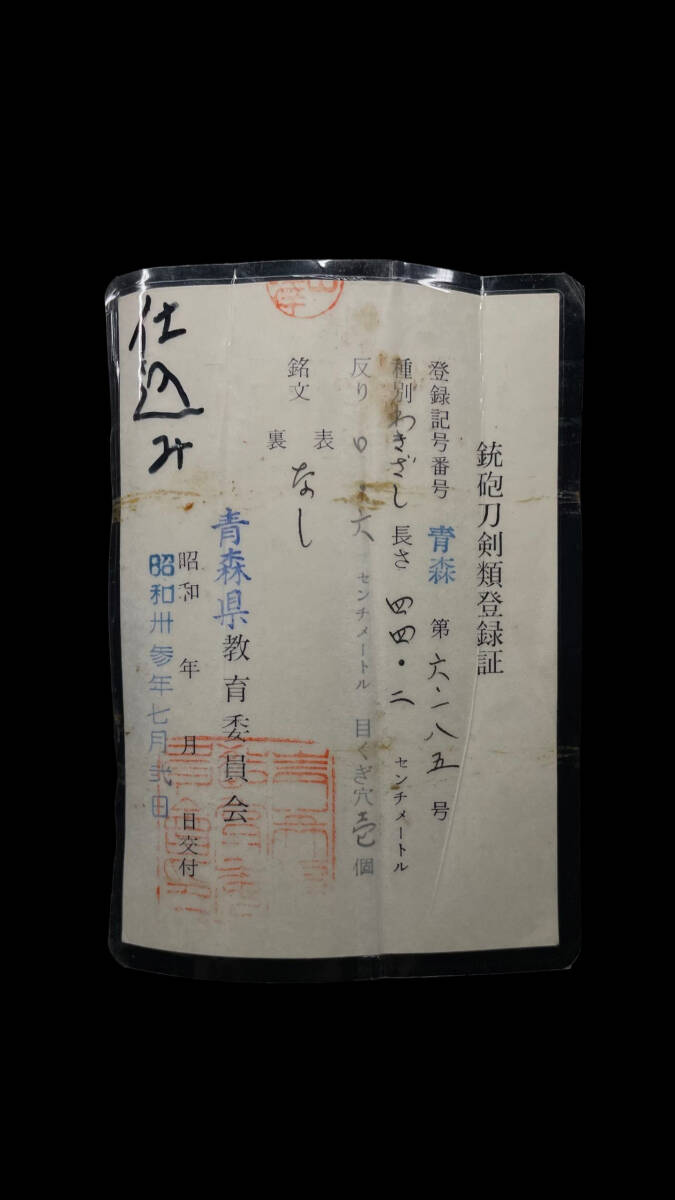 銃砲刀剣類登録証
登録記号番号 青森 第六一八五号
種別 わきざし 長さ 四四・二 センチメートル
反り 〇・六 センチメートル 目くぎ穴 壱 個
銘文 表 なし
裏
青森県教育委員会
昭和 年 月 日交付
昭和卅参年七月弐日
仕込み